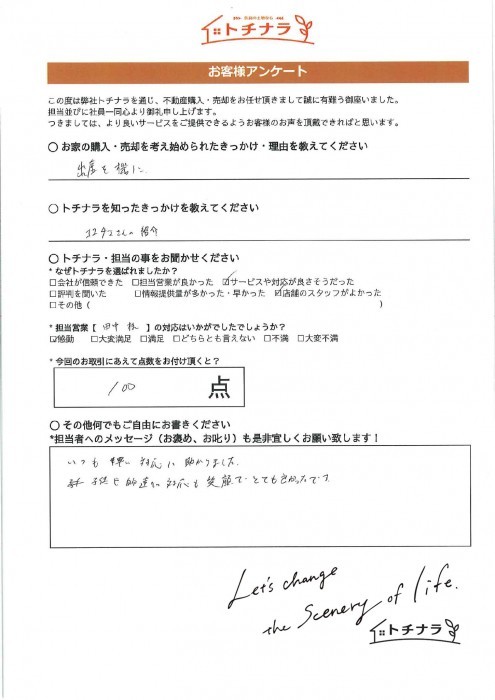 トチナラ
お客様アンケート
この度は弊社トチナラを通じ、不動産購入・売却をお任せ頂きまして誠に有難う御座いました。
担当並びに社員一同心より御礼申し上げます。
つきましては、より良いサービスをご提供できるようお客様のお声を頂戴できればと思います。
〇 お家の購入・売却を考え始められたきっかけ・理由を教えてください
出産を機に
〇 トチナラを知ったきっかけを教えてください
さんの紹介
〇 トチナラ・担当の事をお聞かせください
* なぜトチナラを選ばれましたか？
□会社が信頼できた □担当営業が良かった ☑サービスや対応が良さそうだった
□評判を聞いた □情報提供量が多かった・早かった ☑店舗のスタッフがよかった
□その他（ ）
* 担当営業【 田中 様 】の対応はいかがでしたでしょうか？
☑感動 □大変満足 □満足 □どちらとも言えない □不満 □大変不満
* 今回のお取引にあえて点数をお付け頂くと？
100 点
〇 その他何でもご自由にお書きください
*担当者へのメッセージ（お褒め、お叱り）も是非宜しくお願い致します！
いつも 早い 対応に 助かりました。
対応も 笑顔で とても良かったです
Let's change
the Scenery of life.
トチナラ